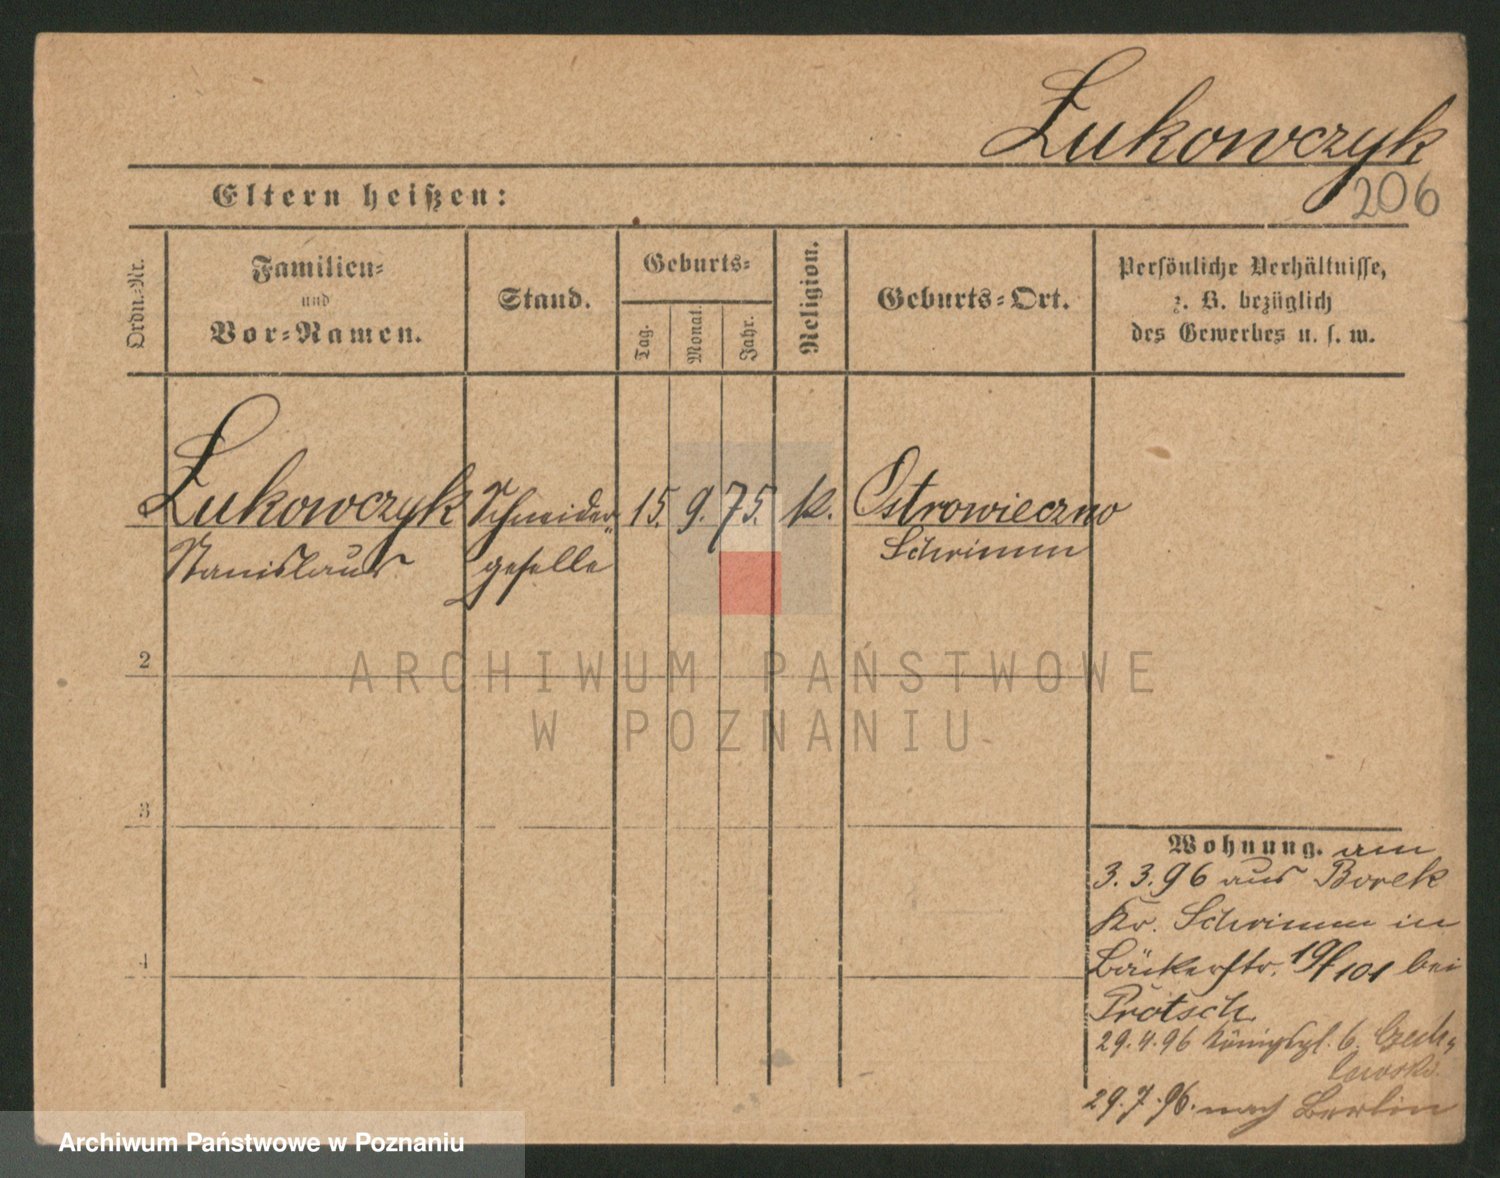 Łukowczyk
206
Eltern heißen:
Ordn.-Nr.
Familien-
und
Vor-Namen.
Stand.
Geburts-
Tag.
Monat.
Jahr.
Religion.
Geburts-Ort.
Persönliche Verhältnisse,
z. B. bezüglich
des Gewerbes u. s. w.
Łukowczyk Schneider- 15. 9. 75. k. Ostrowieczno
Stanislaus geselle Schrimm
2
3
4
ARCHIWUM PAŃSTWOWE
W POZNANIU
Wohnung. am
3. 3. 96 aus Borek
Kr. Schrimm in
Bäckerstr. 19/101 bei
Protsch
29.4.96 Königspl. 6.
29.7.96. nach Berlin
Archiwum Państwowe w Poznaniu